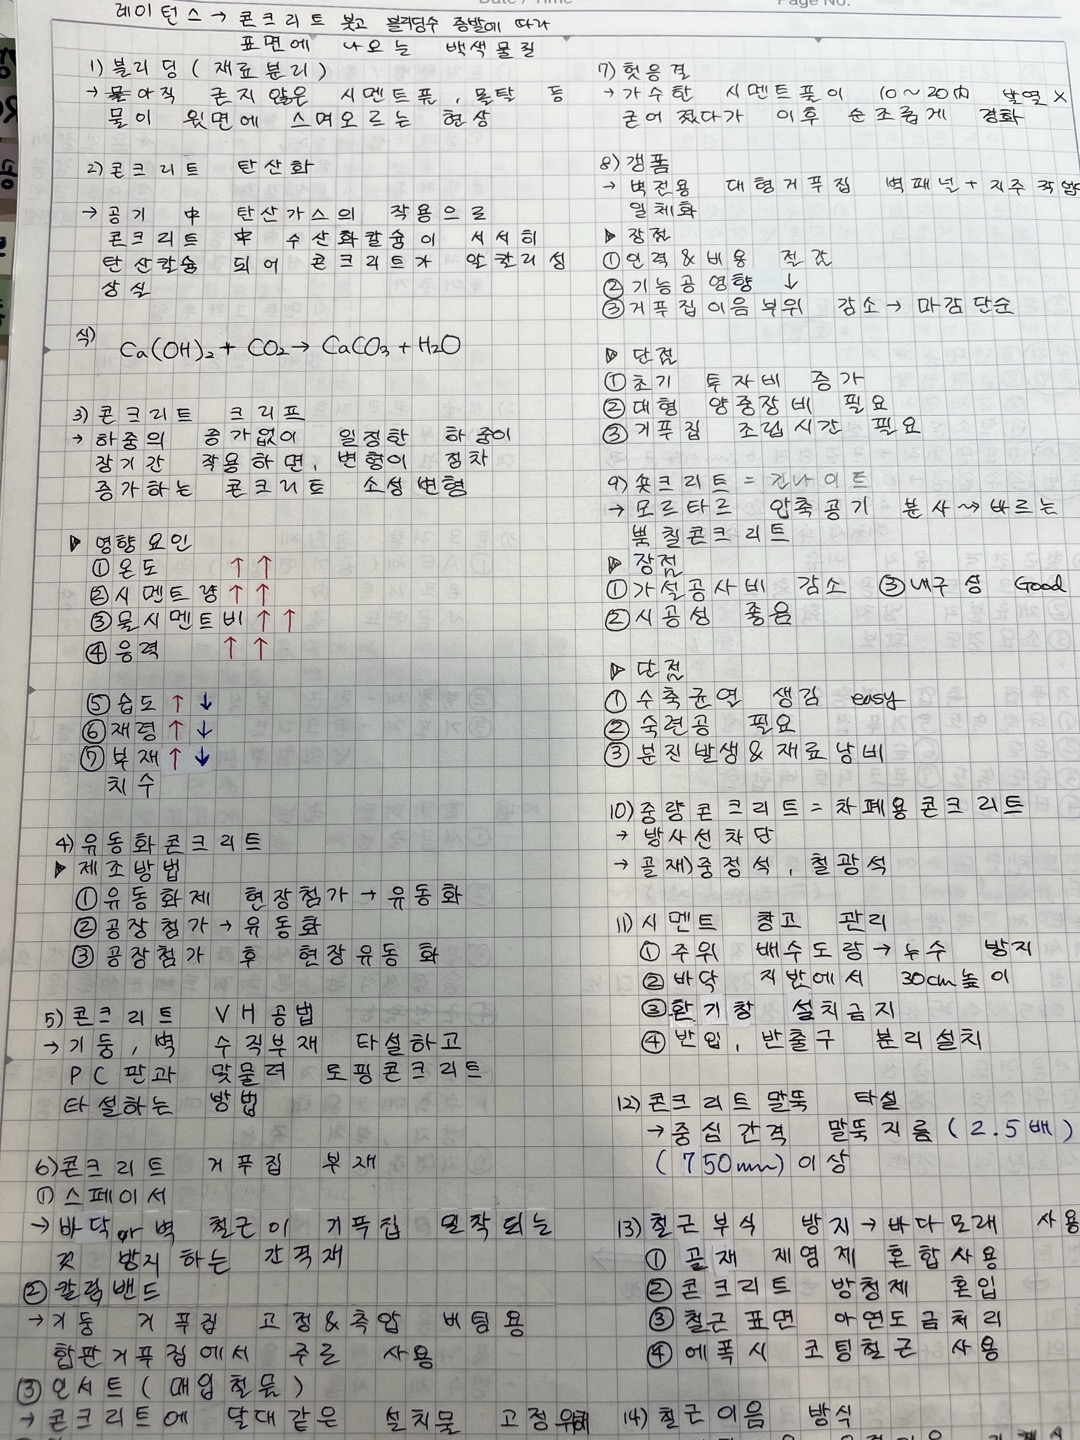 Page No.
레이턴스 → 콘크리트 붓고 블리딩수 증발에 따라
표면에 나오는 백색물질
1) 블리딩 (재료분리)
→ 아직 굳지 않은 시멘트풀, 몰탈 등
물이 윗면에 스며오르는 현상
2) 콘크리트 탄산화
→ 공기 中 탄산가스의 작용으로
콘크리트 中 수산화칼슘이 서서히
탄산칼슘 되어 콘크리트가 알칼리성
상실
식) Ca(OH)₂ + CO₂ → CaCO₃ + H₂O
3) 콘크리트 크리프
→ 하중의 증가없이 일정한 하중이
장기간 작용하면, 변형이 점차
증가하는 콘크리트 소성변형
▷ 영향요인
① 온도 ↑ ↑
② 시멘트량 ↑ ↑
③ 물시멘트비 ↑ ↑
④ 응력 ↑ ↑
⑤ 습도 ↑ ↓
⑥ 재령 ↑ ↓
⑦ 부재 ↑ ↓
치수
4) 유동화콘크리트
▷ 제조방법
① 유동화제 현장첨가 → 유동화
② 공장첨가 → 유동화
③ 공장첨가 후 현장유동화
5) 콘크리트 VH공법
→ 기둥, 벽 수직부재 타설하고
PC판과 맞물려 토핑콘크리트
타설하는 방법
6) 콘크리트 거푸집 부재
① 스페이서
→ 바닥 or 벽 철근이 거푸집 밀착되는
것 방지하는 간격재
② 칼럼밴드
→ 기둥 거푸집 고정 & 측압 버팀용
합판거푸집에서 주로 사용
③ 인서트 (매입철물)
→ 콘크리트에 달대같은 설치물 고정위해
7) 헛응결
→ 가수한 시멘트풀이 10~20분 발열×
굳어졌다가 이후 순조롭게 경화
8) 갱폼
→ 벽전용 대형거푸집 벽패널 + 지주 작업
일체화
▷ 장점
① 인력 & 비용 절감
② 기능공 영향 ↓
③ 거푸집이음부위 감소 → 마감단순
▷ 단점
① 초기 투자비 증가
② 대형 양중장비 필요
③ 거푸집 조립시간 필요
9) 숏크리트 = 건나이트
→ 모르타르 압축공기 분사 ~> 바르는
뿜칠콘크리트
▷ 장점
① 가설공사비 감소 ③ 내구성 Good
② 시공성 좋음
▷ 단점
① 수축균연 생김 easy
② 숙련공 필요
③ 분진발생 & 재료낭비
10) 중량콘크리트 = 차폐용콘크리트
→ 방사선차단
→ 골재) 중정석, 철광석
11) 시멘트 창고 관리
① 주위 배수도랑 → 누수 방지
② 바닥 지반에서 30cm높이
③ 환기창 설치금지
④ 반입, 반출구 분리설치
12) 콘크리트말뚝 타설
→ 중심간격 말뚝지름 (2.5배)
(750mm) 이상
13) 철근부식 방지 → 바다모래 사용
① 골재 제염제 혼합사용
② 콘크리트 방청제 혼입
③ 철근표면 아연도금처리
④ 에폭시 코팅철근 사용
14) 철근이음 방식